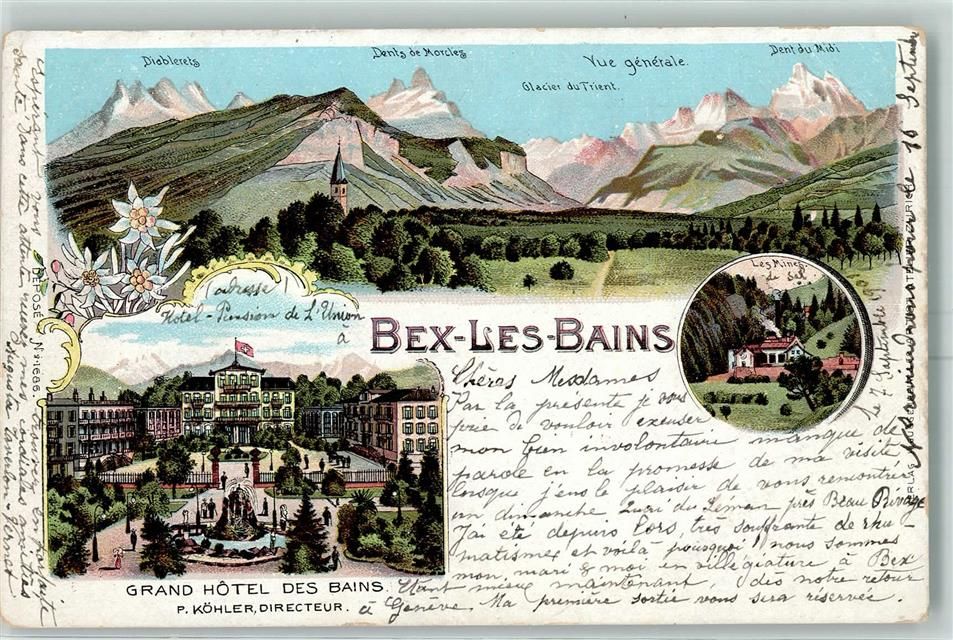 Diablerets
Dents de Morcles
Vue générale.
Glacier du Trient.
Dent du Midi
Les Mines
de Sel
(adresse)
Hôtel-Pension de L'Union
à
BEX-LES-BAINS
le 7 Septembre
Chères Mesdames
Par la présente je vous
prie de vouloir excuser
mon bien involontaire manque de
parole en la promesse de ma visite
lorsque j'eus le plaisir de vous rencontrer
un dimanche Quai du Léman près Beau Rivage
J'ai été depuis lors, très souffrante de rhu
matismes et voilà pourquoi! nous sommes
mon mari & moi en villégiature à Bex
étant mieux maintenant, dès notre retour
à Genève. Ma première sortie vous sera réservée.
GRAND HÔTEL DES BAINS.
P. KÖHLER, DIRECTEUR.
DÉPOSÉ
No 11686
Espérant vous trouver en parfaite
santé! Dans cette attente recevez mes cordiales amitiés
16 Septembre